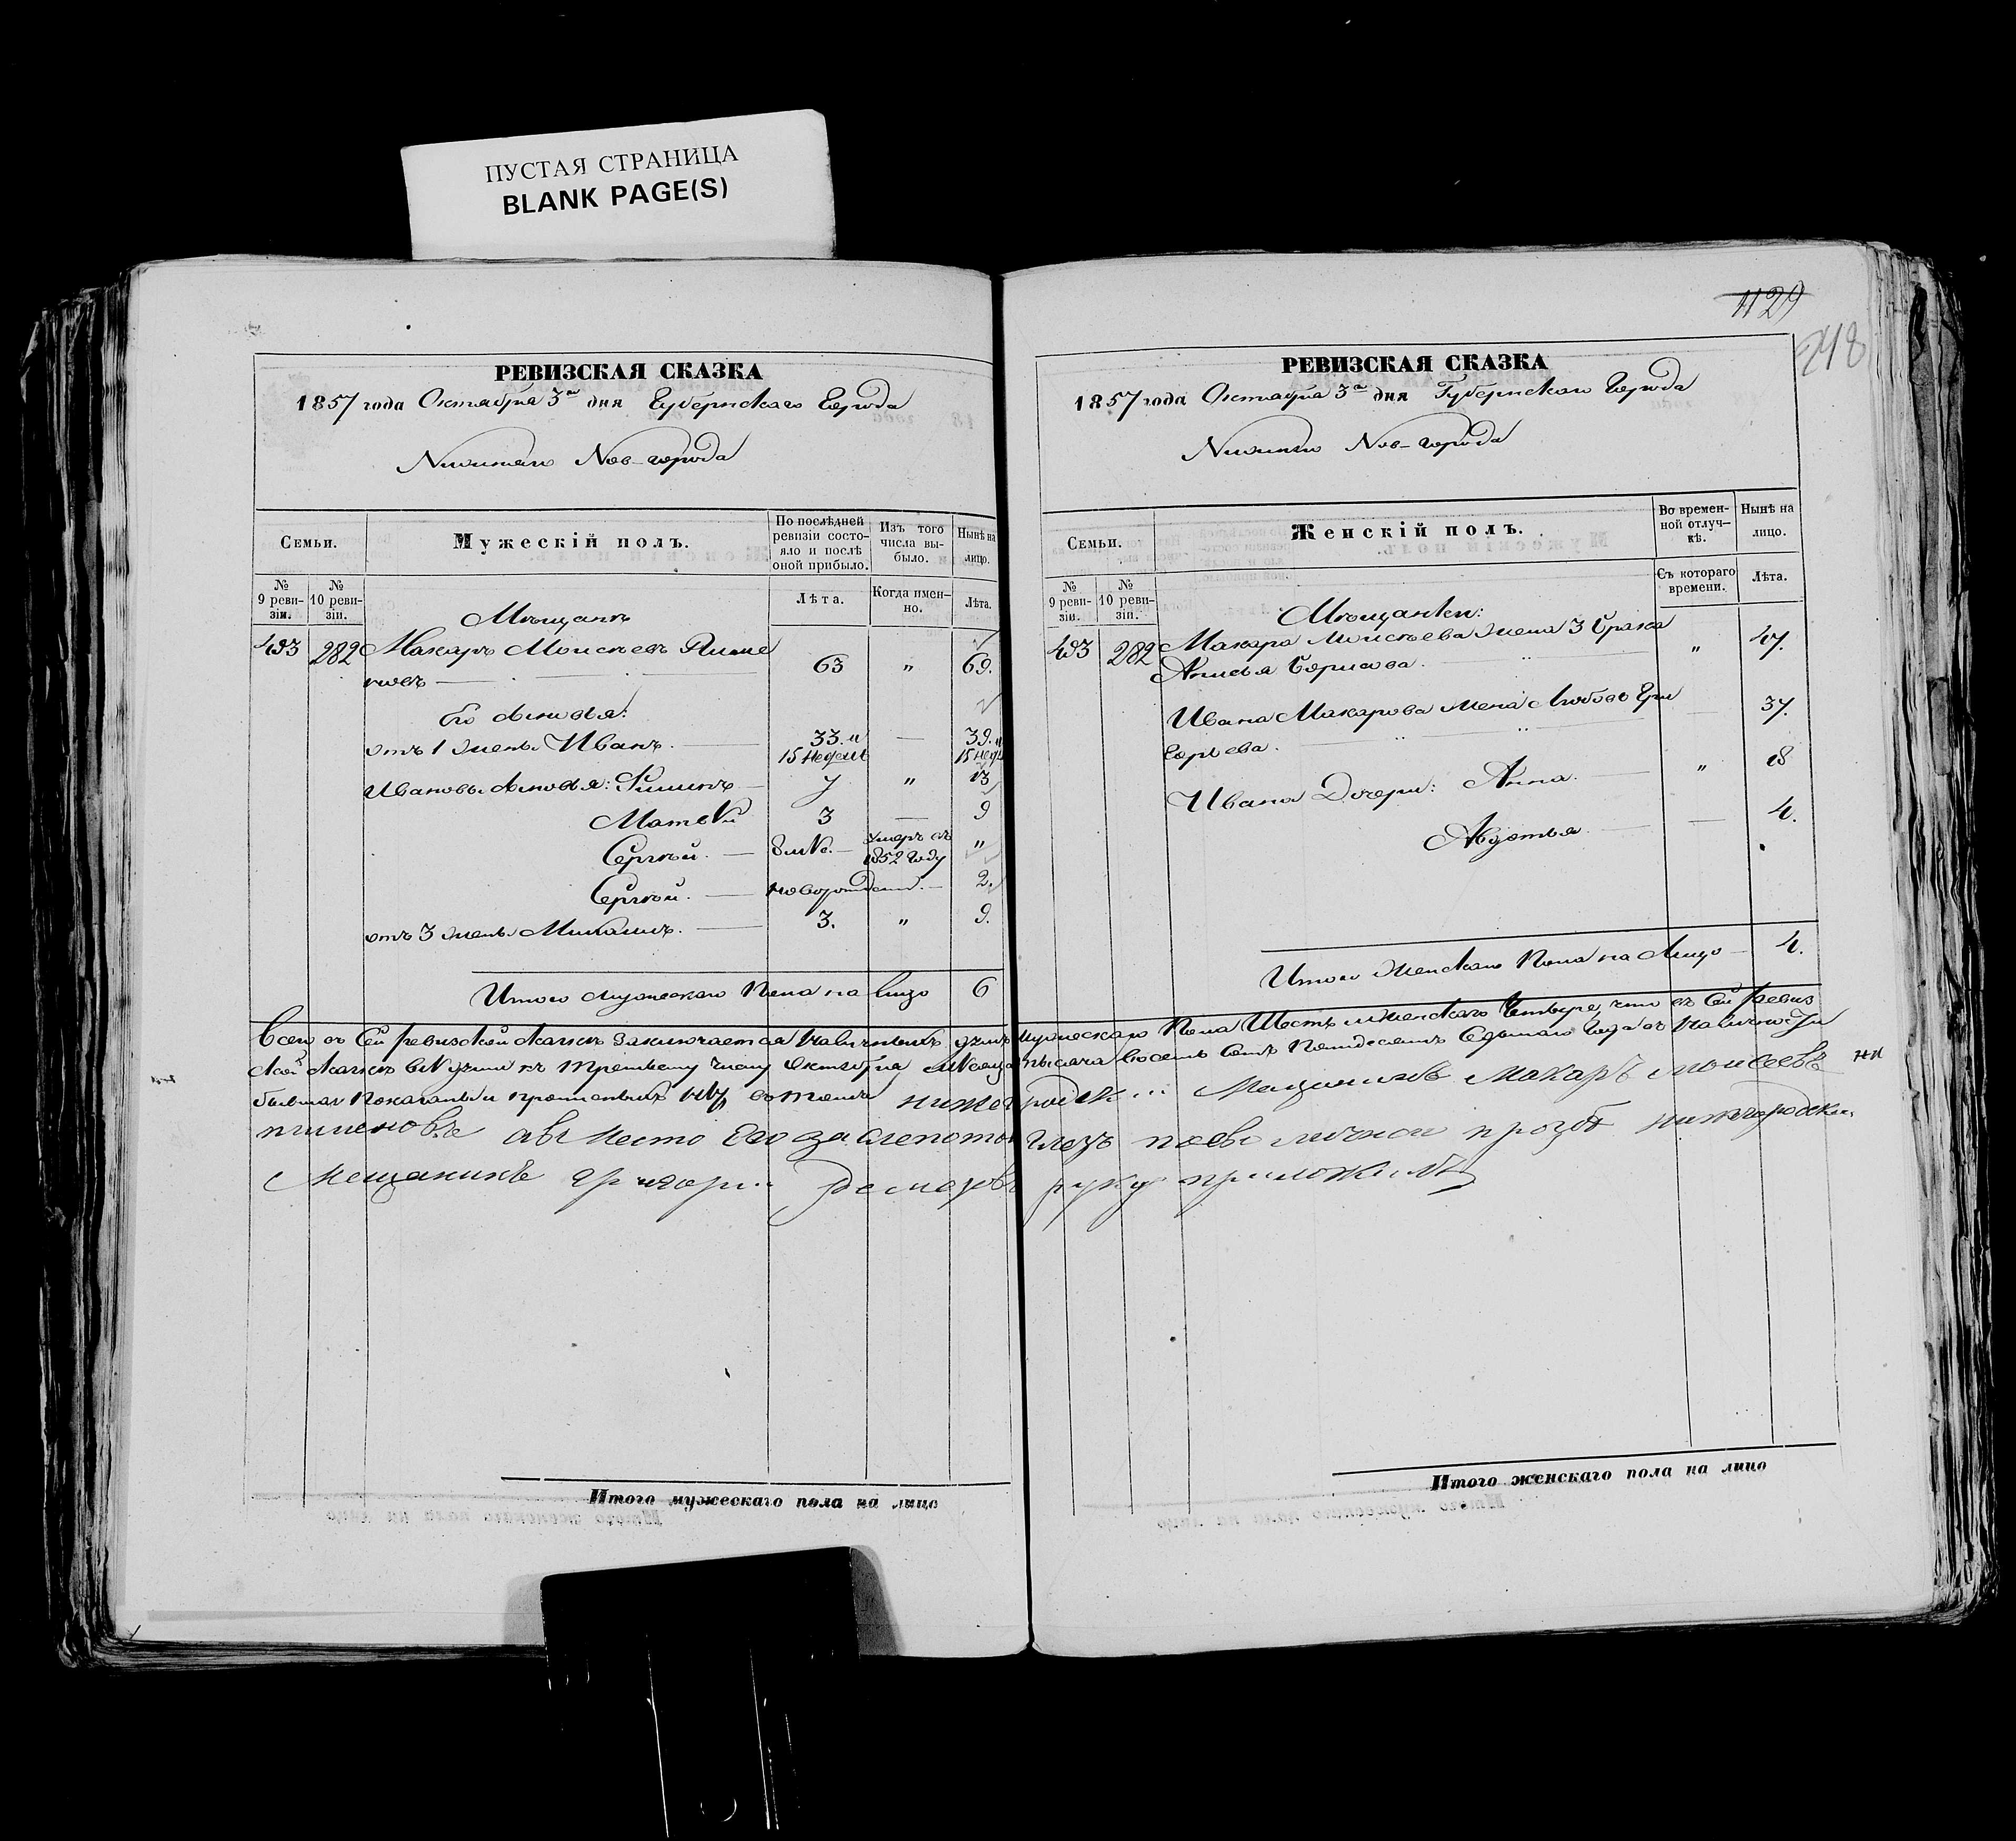 ПУСТАЯ СТРАНИЦА
BLANK PAGE(S)
РЕВИЗСКАЯ СКАЗКА
1857 года Октября 3го дня Губернскаго Города
Нижняго Нов-города
Семьи.
Мужескій полъ.
По послѣдней ревизіи состояло и послѣ оной прибыло.
Изъ того числа выбыло.
Нынѣ на лицо.
№ 9 ревизіи.
№ 10 ревизіи.
Лѣта.
Когда именно.
Лѣта.
Мѣщанъ
493 282 Макаръ Моисѣевъ Пиме
новъ 63 " 69.
Его сыновья:
отъ 1 жены Иванъ. 33. и 15 недель — 39. и 15 нед
Ивановы сыновья: Филипъ 7 " 13
Матвѣй 3 — 9
Сергѣй. 8 мѣс. Умеръ въ 1852 году "
Сергѣй. новорожден. — 2.
отъ 3 жены Михаилъ. 3. " 9.
Итого мужескаго пола на лицо 6
1129
248
РЕВИЗСКАЯ СКАЗКА
1857 года Октября 3го дня Губернскаго Города
Нижняго Нов-города
Семьи.
Женскій полъ.
Во временной отлучкѣ.
Нынѣ на лицо.
№ 9 ревизіи.
№ 10 ревизіи.
Съ котораго времени.
Лѣта.
Мѣщанки:
493 282 Макара Моисѣева жена 3 брака
Анисья Борисова. " 47.
Ивана Макарова жена Любовь Гри
горьева. 37.
Ивана Дочери: Анна. " 18
Авдотья. — 4.
Итого женскаго пола на лицо — 4.
Всего въ сей ревизской сказкѣ заключается наличныхъ душъ мужескаго пола Шесть и женскаго Четыре, что въ сей ревиз
ской сказкѣ всѣ души къ третьему числу Октября мѣсяца тысяча восемь сотъ пятдесятъ седьмаго года въ наличности
бывшая показаны и прописныхъ нѣтъ въ томъ нижегородск Мещининъ Макаръ моисеевъ
пименовъ а вместо его за слепотою глазъ по ево личной прозбе нижегородский
Мещанинъ григорий руку приложилъ
Итого мужескаго пола на лицо
Итого женскаго пола на лицо